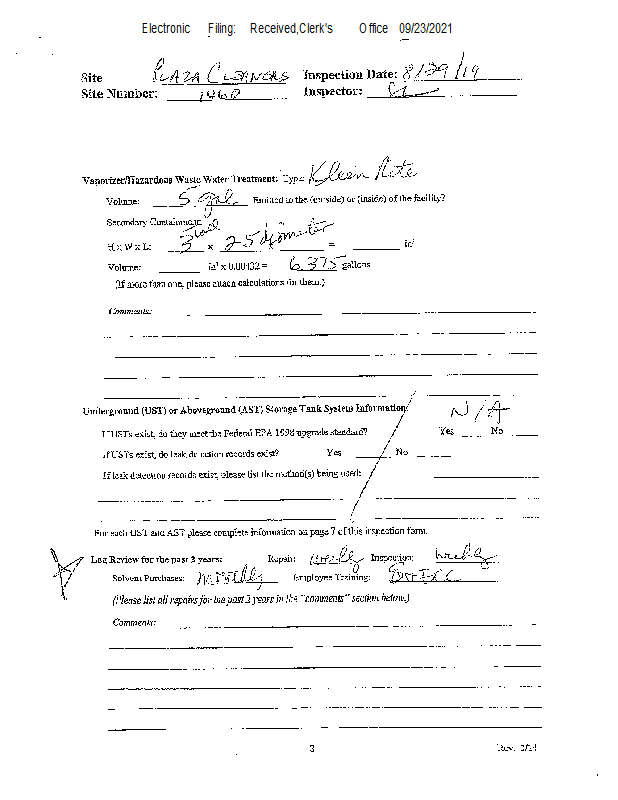 Electronic Filing: Received,Clerk's Office 09/23/2021
Site PLAZA CLEANERS Inspection Date: 8/29/19
Site Number: 1460 Inspector:
Vaporizer/Hazardous Waste Water Treatment: Type: Kleen Rite
Volume: 5 gal Emitted to the (outside) or (inside) of the facility?
Secondary Containment: Steel
H x W x L: 3 x 25 diameter = in³
Volume: in³ x 0.00432 = 6.375 gallons
(If more than one, please attach calculations for them.)
Comments:
Underground (UST) or Aboveground (AST) Storage Tank System Information: N/A
If USTs exist, do they meet the Federal EPA 1998 upgrade standard? Yes No
If USTs exist, do leak detection records exist? Yes No
If leak detection records exist, please list the method(s) being used:
For each UST and AST please complete information on page 7 of this inspection form.
Log Review for the past 2 years: Repair: Inspection: weekly
Solvent Purchases: monthly Employee Training:
(Please list all repairs for the past 2 years in the "comments" section below.)
Comments:
3 Rev.